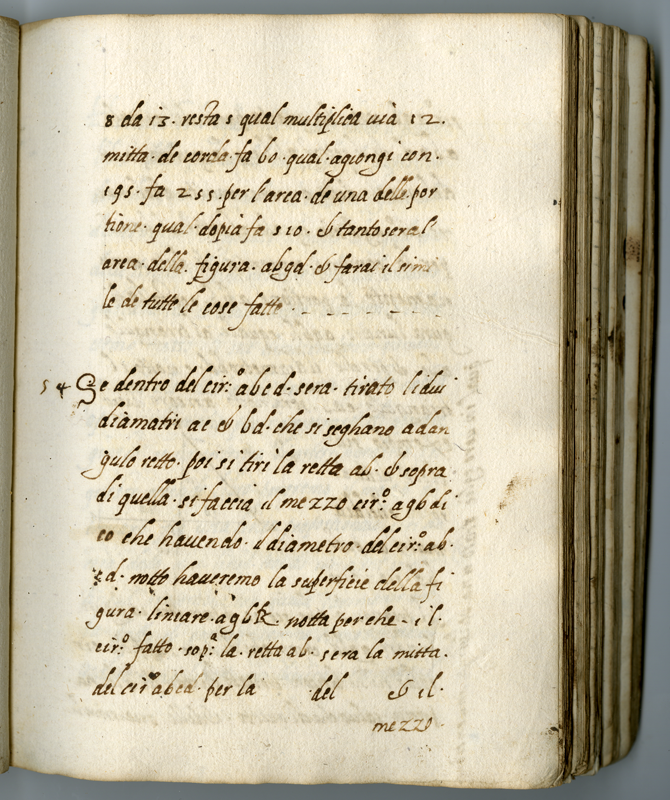 8 da 13. resta 5 qual multiplica vià 12.
mitta. de corda. fa 60. qual. agiongi con.
195. fa 255. per l'area. de una delle. por
tione. qual. dopia fa 510. & tanto sera l'
area. della. figura. abgd. & farai il simi
le de tutte le cose fatte - - - - -
54 Se dentro del cir:º abcd. sera. tirato li dui
diamatri ac & bd. che si seghano ad an
gulo retto. poi si tiri la retta ab. & sopra
di quella. si faccia il mezzo cir:º agb di
co che havendo. il diametro. del cir:º ab.
cd. notto haveremo la superficie della fi
gura. liniare. agbk. notta perche - il.
cir:º fatto. sop:ª la. retta ab. sera la mitta.
del cirº abcd. per la del & il.
mezzo